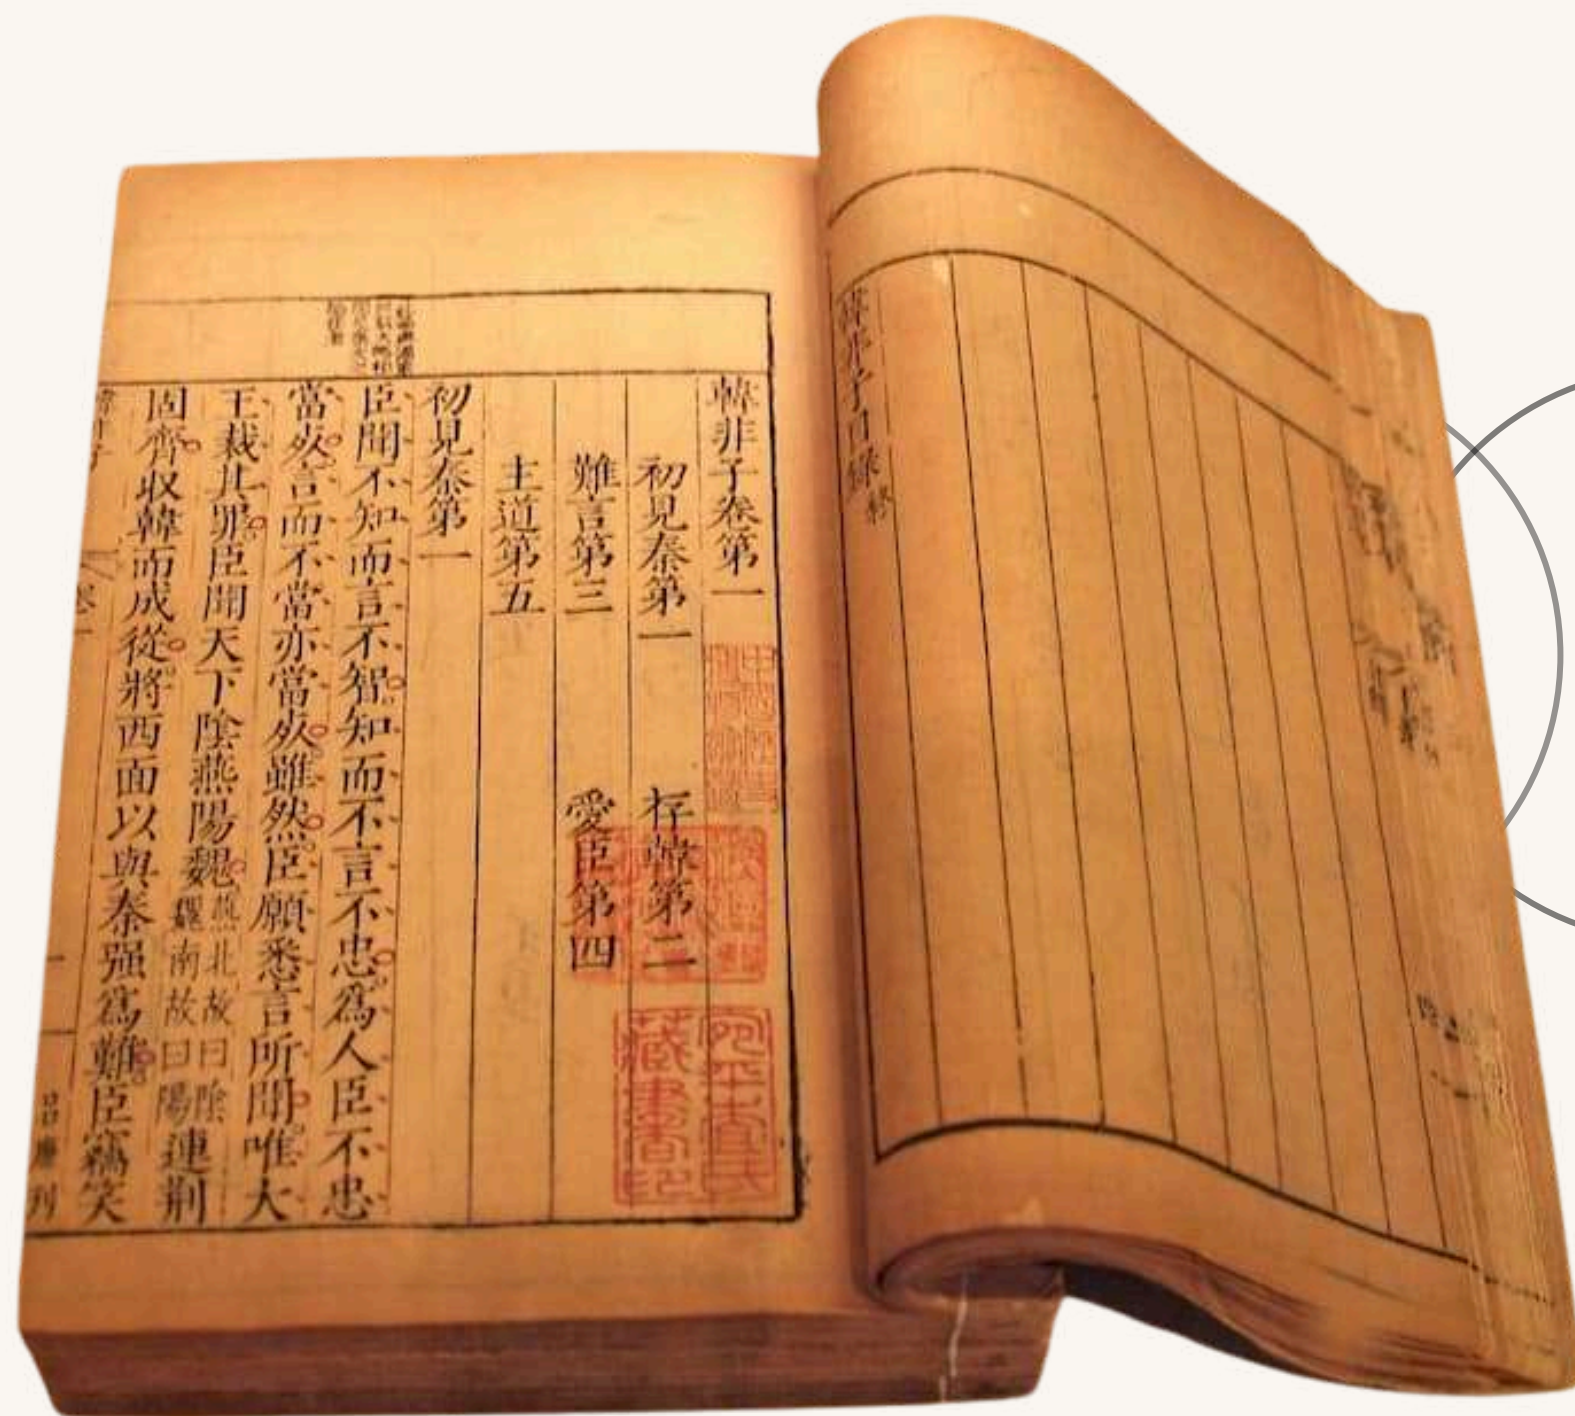 韓非子目録終
韓非子卷第一
初見秦第一 存韓第二
難言第三 愛臣第四
主道第五
初見秦第一
臣聞不知而言不智知而不言不忠爲人臣不忠
當死言而不當亦當死雖然臣願悉言所聞唯大
王裁其罪臣聞天下陰燕陽魏燕北故曰陰魏南故曰陽連荆
固齊收韓而成從將西面以與秦强爲難臣竊笑
韓非子 卷一 一 刊
藏書印